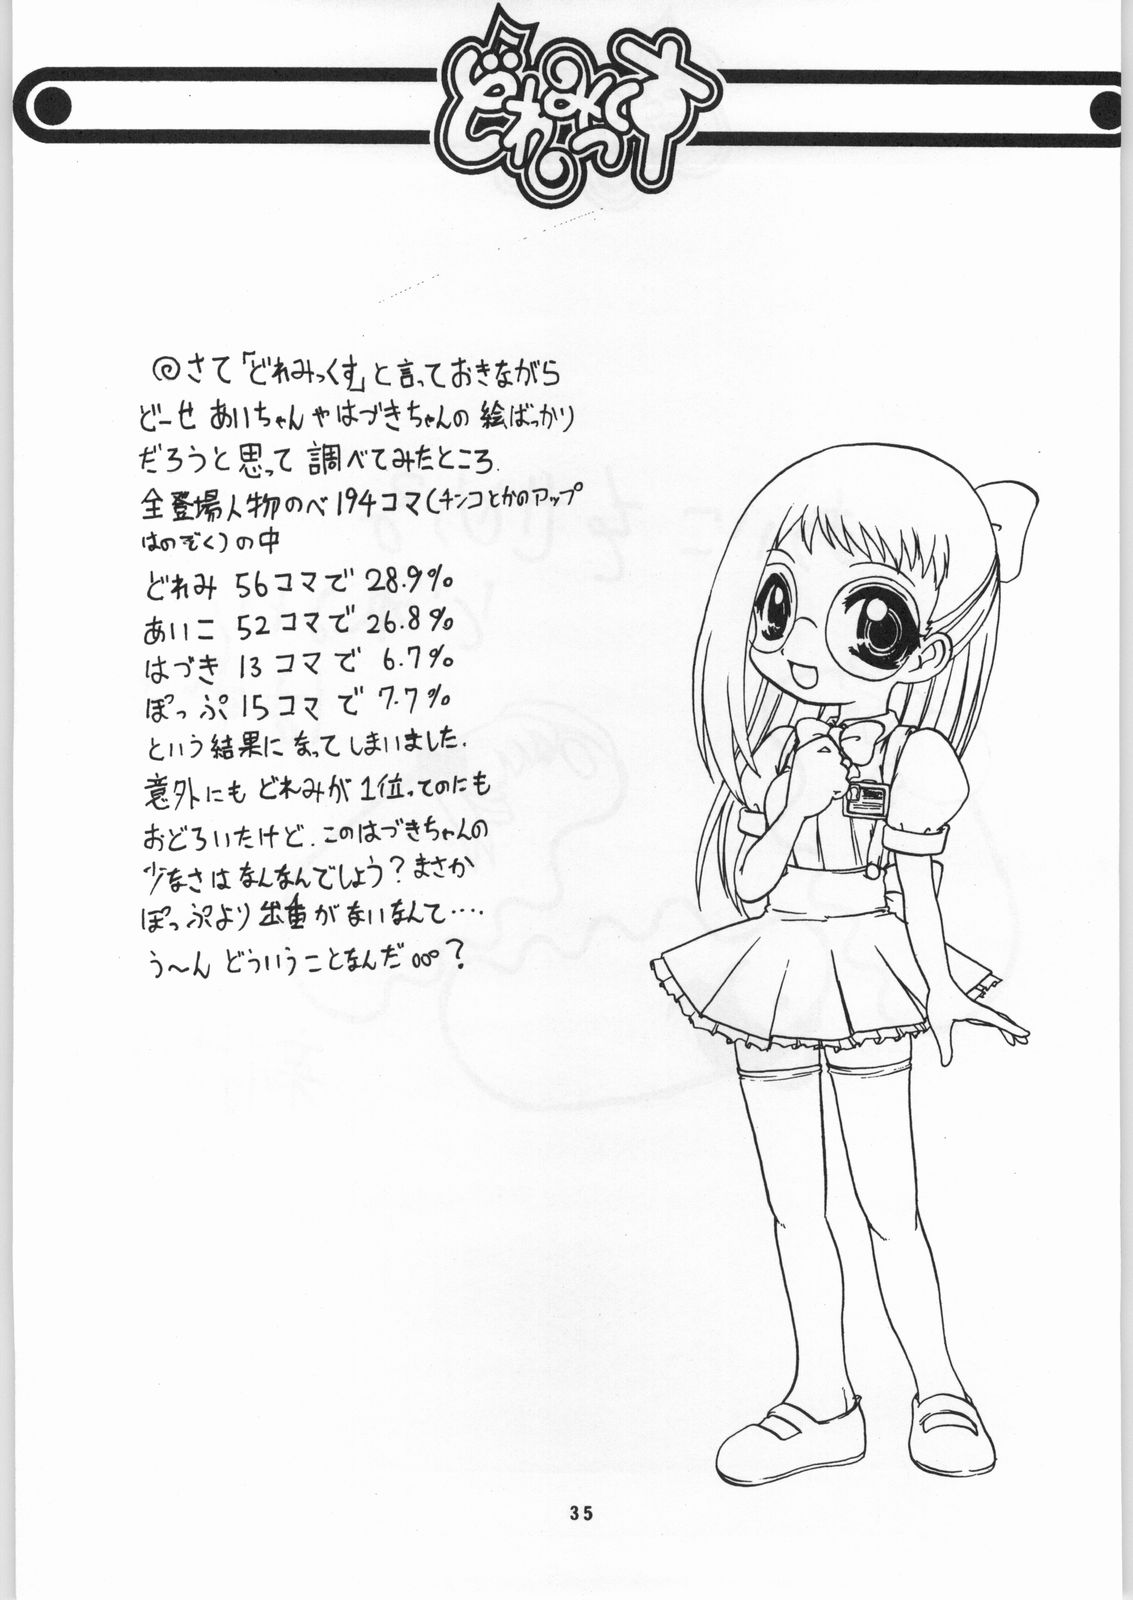 どれみっくす
◎さて「どれみっくす」と言っておきながら
どーせ あいちゃんやはづきちゃんの 絵ばっかり
だろうと思って 調べてみたところ.
全登場人物のべ 194コマ(チンコとかのアップ
はのぞく)の中
どれみ 56コマで 28.9%
あいこ 52コマで 26.8%
はづき 13コマで 6.7%
ぽっぷ 15コマで 7.7%
という結果になってしまいました.
意外にも どれみが 1位ってのにも
おどろいたけど. このはづきちゃんの
少なさは なんなんでしょう? まさか
ぽっぷより 出番がないなんて....
う〜ん どういうことなんだ。。。?
35